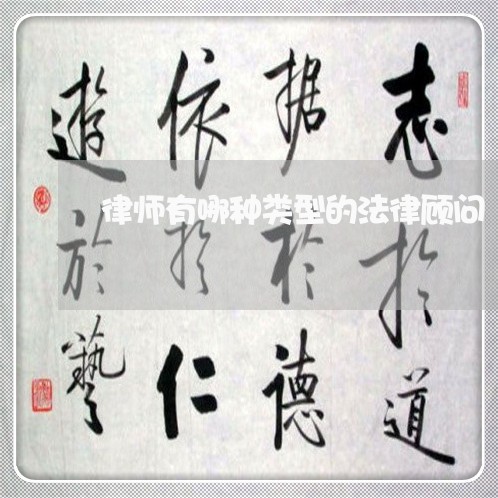 志於道
据於德
依於仁
遊於藝
律师有哪种类型的法律顾问